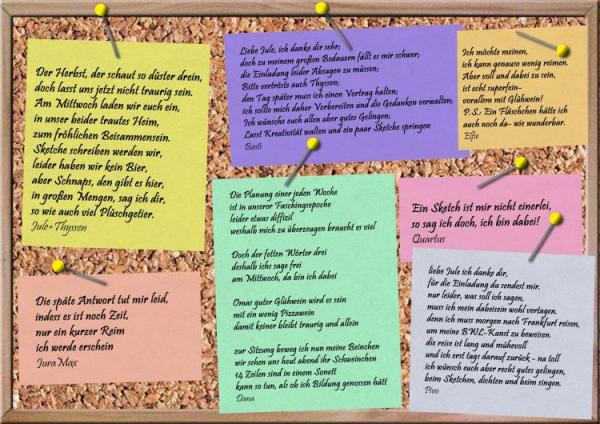 Der Herbst, der schaut so düster drein,
doch lasst uns jetzt nicht traurig sein.
Am Mittwoch laden wir euch ein,
in unser beider trautes Heim,
zum fröhlichen Beisammensein.
Sketche schreiben werden wir,
leider haben wir kein Bier,
aber Schnaps, den gibt es hier,
in großen Mengen, sag ich dir,
so wie auch viel Plüschgetier.
Jule+Thyssen
Liebe Jule, ich danke dir sehr;
doch zu meinem großen Bedauern fällt es mir schwer,
die Einladung leider Absagen zu müssen;
Bitte vertröste auch Thyssen;
den Tag später muss ich einen Vortrag halten;
ich sollte mich daher Vorbereiten und die Gedanken verwalten;
Ich wünsche euch allen aber gutes Gelingen;
Lasst Kreativität walten und ein paar Sketche springen
Basti
Ich möchte meinen,
ich kann genauso wenig reimen.
Aber voll und dabei zu sein,
ist echt superfein-
vorallem mit Glühwein!
P.S.: Ein Fläschchen hätte ich
auch noch da- wie wunderbar.
Elfie
Die späte Antwort tut mir leid,
indess es ist noch Zeit,
nur ein kurzer Reim
ich werde erschein
Jura Max
Die Planung einer jeden Woche
ist in unserer Faschingsepoche
leider etwas diffizil
weshalb mich zu überzeugen braucht es viel
Doch der fetten Wörter drei
deshalb ichs sage frei
am Mittwoch, da bin ich dabei
Omas guter Glühwein wird es sein
mit ein wenig Pizzawein
damit keiner bleibt traurig und allein
zur Sitzung beweg ich nun meine Beinchen
wir sehen uns heut abend ihr Schweinchen
14 Zeilen sind in einem Sonett
kann so tun, als ob ich Bildung genossen hätt
Dana
Ein Sketch ist mir nicht einerlei,
so sag ich doch, ich bin dabei!
Quartus
liebe Jule ich danke dir,
für die Einladung du sendest mir.
nur leider, was soll ich sagen,
muss ich mein dabeisein wohl vertagen.
denn ich muss morgen nach Frankfurt reisen,
um meine BWL-Kunst zu beweisen.
die reise ist lang und mühevoll
und ich erst tags darauf zurück - na toll
ich wünsch euch aber recht gutes gelingen,
beim Sketchen, dichten und beim singen.
Pivo